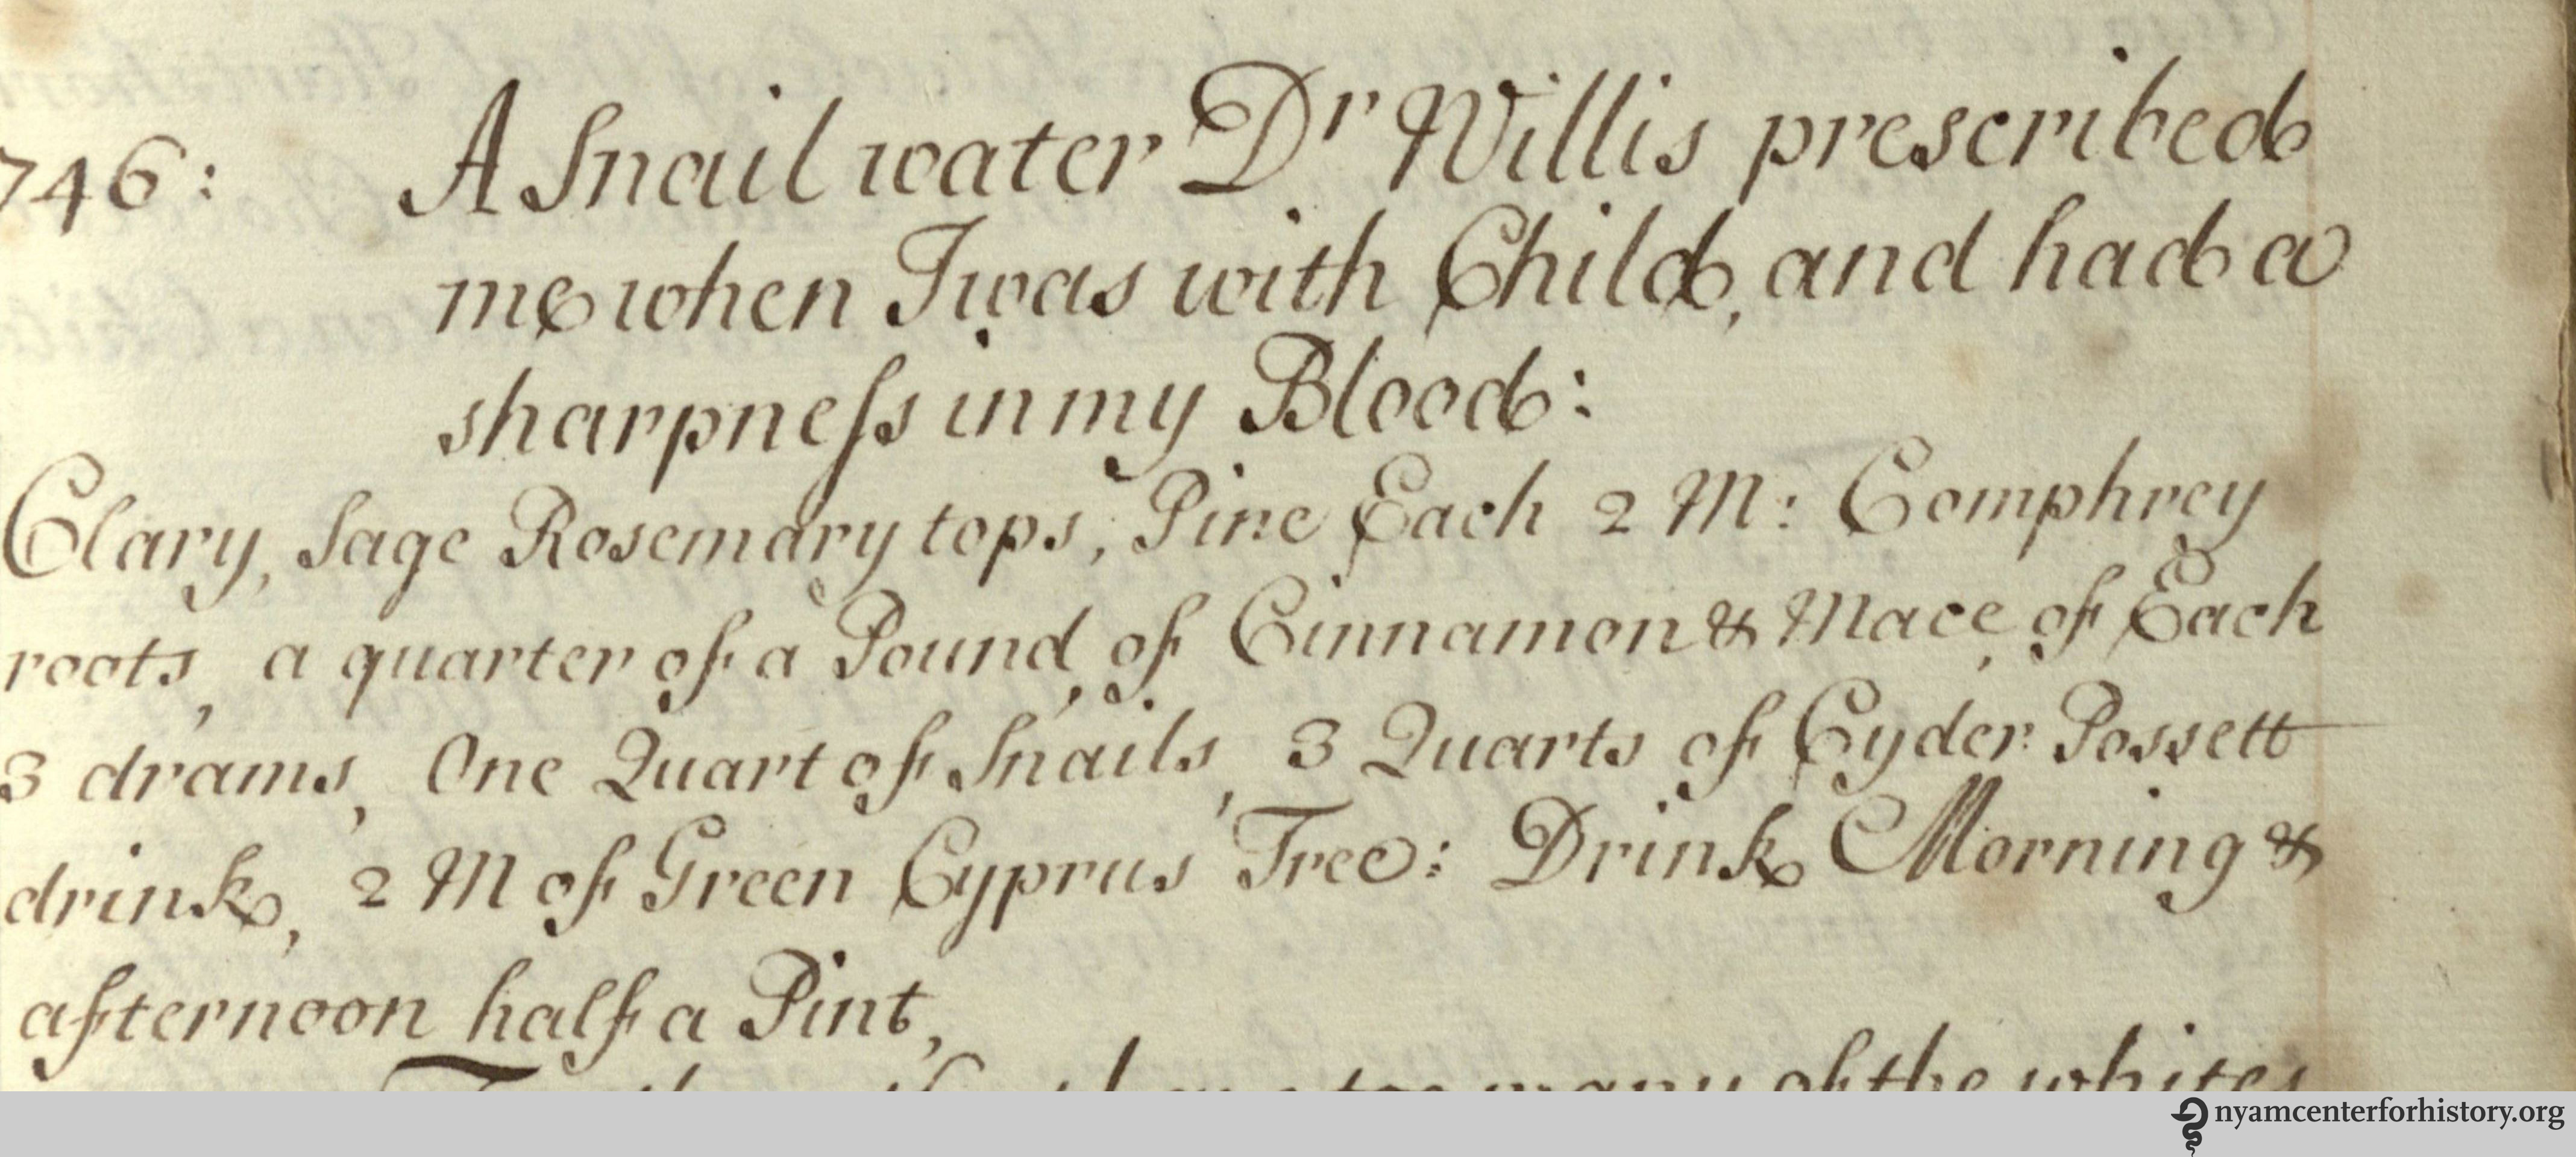 746:   A Snail water Dr Willis prescribed
me when I was with Child, and had a
sharpneſs in my Blood:
Clary, Sage Rosemary tops, Pine Each 2 M: Comphrey
roots, a quarter of a Pound, of Cinnamon & Mace, of Each
3 drams, One Quart of Snails, 3 Quarts of Cyder Possett
drink, 2 M of Green Cyprus Tree: Drink Morning &
afternoon half a Pint,
too many of the whites
nyamcenterforhistory.org